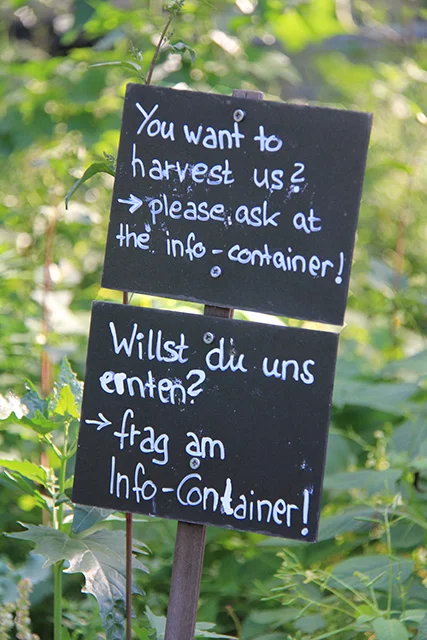 You want to
harvest us?
→ please ask at
the info-container!
Willst du uns
ernten?
→ frag am
Info-Container!